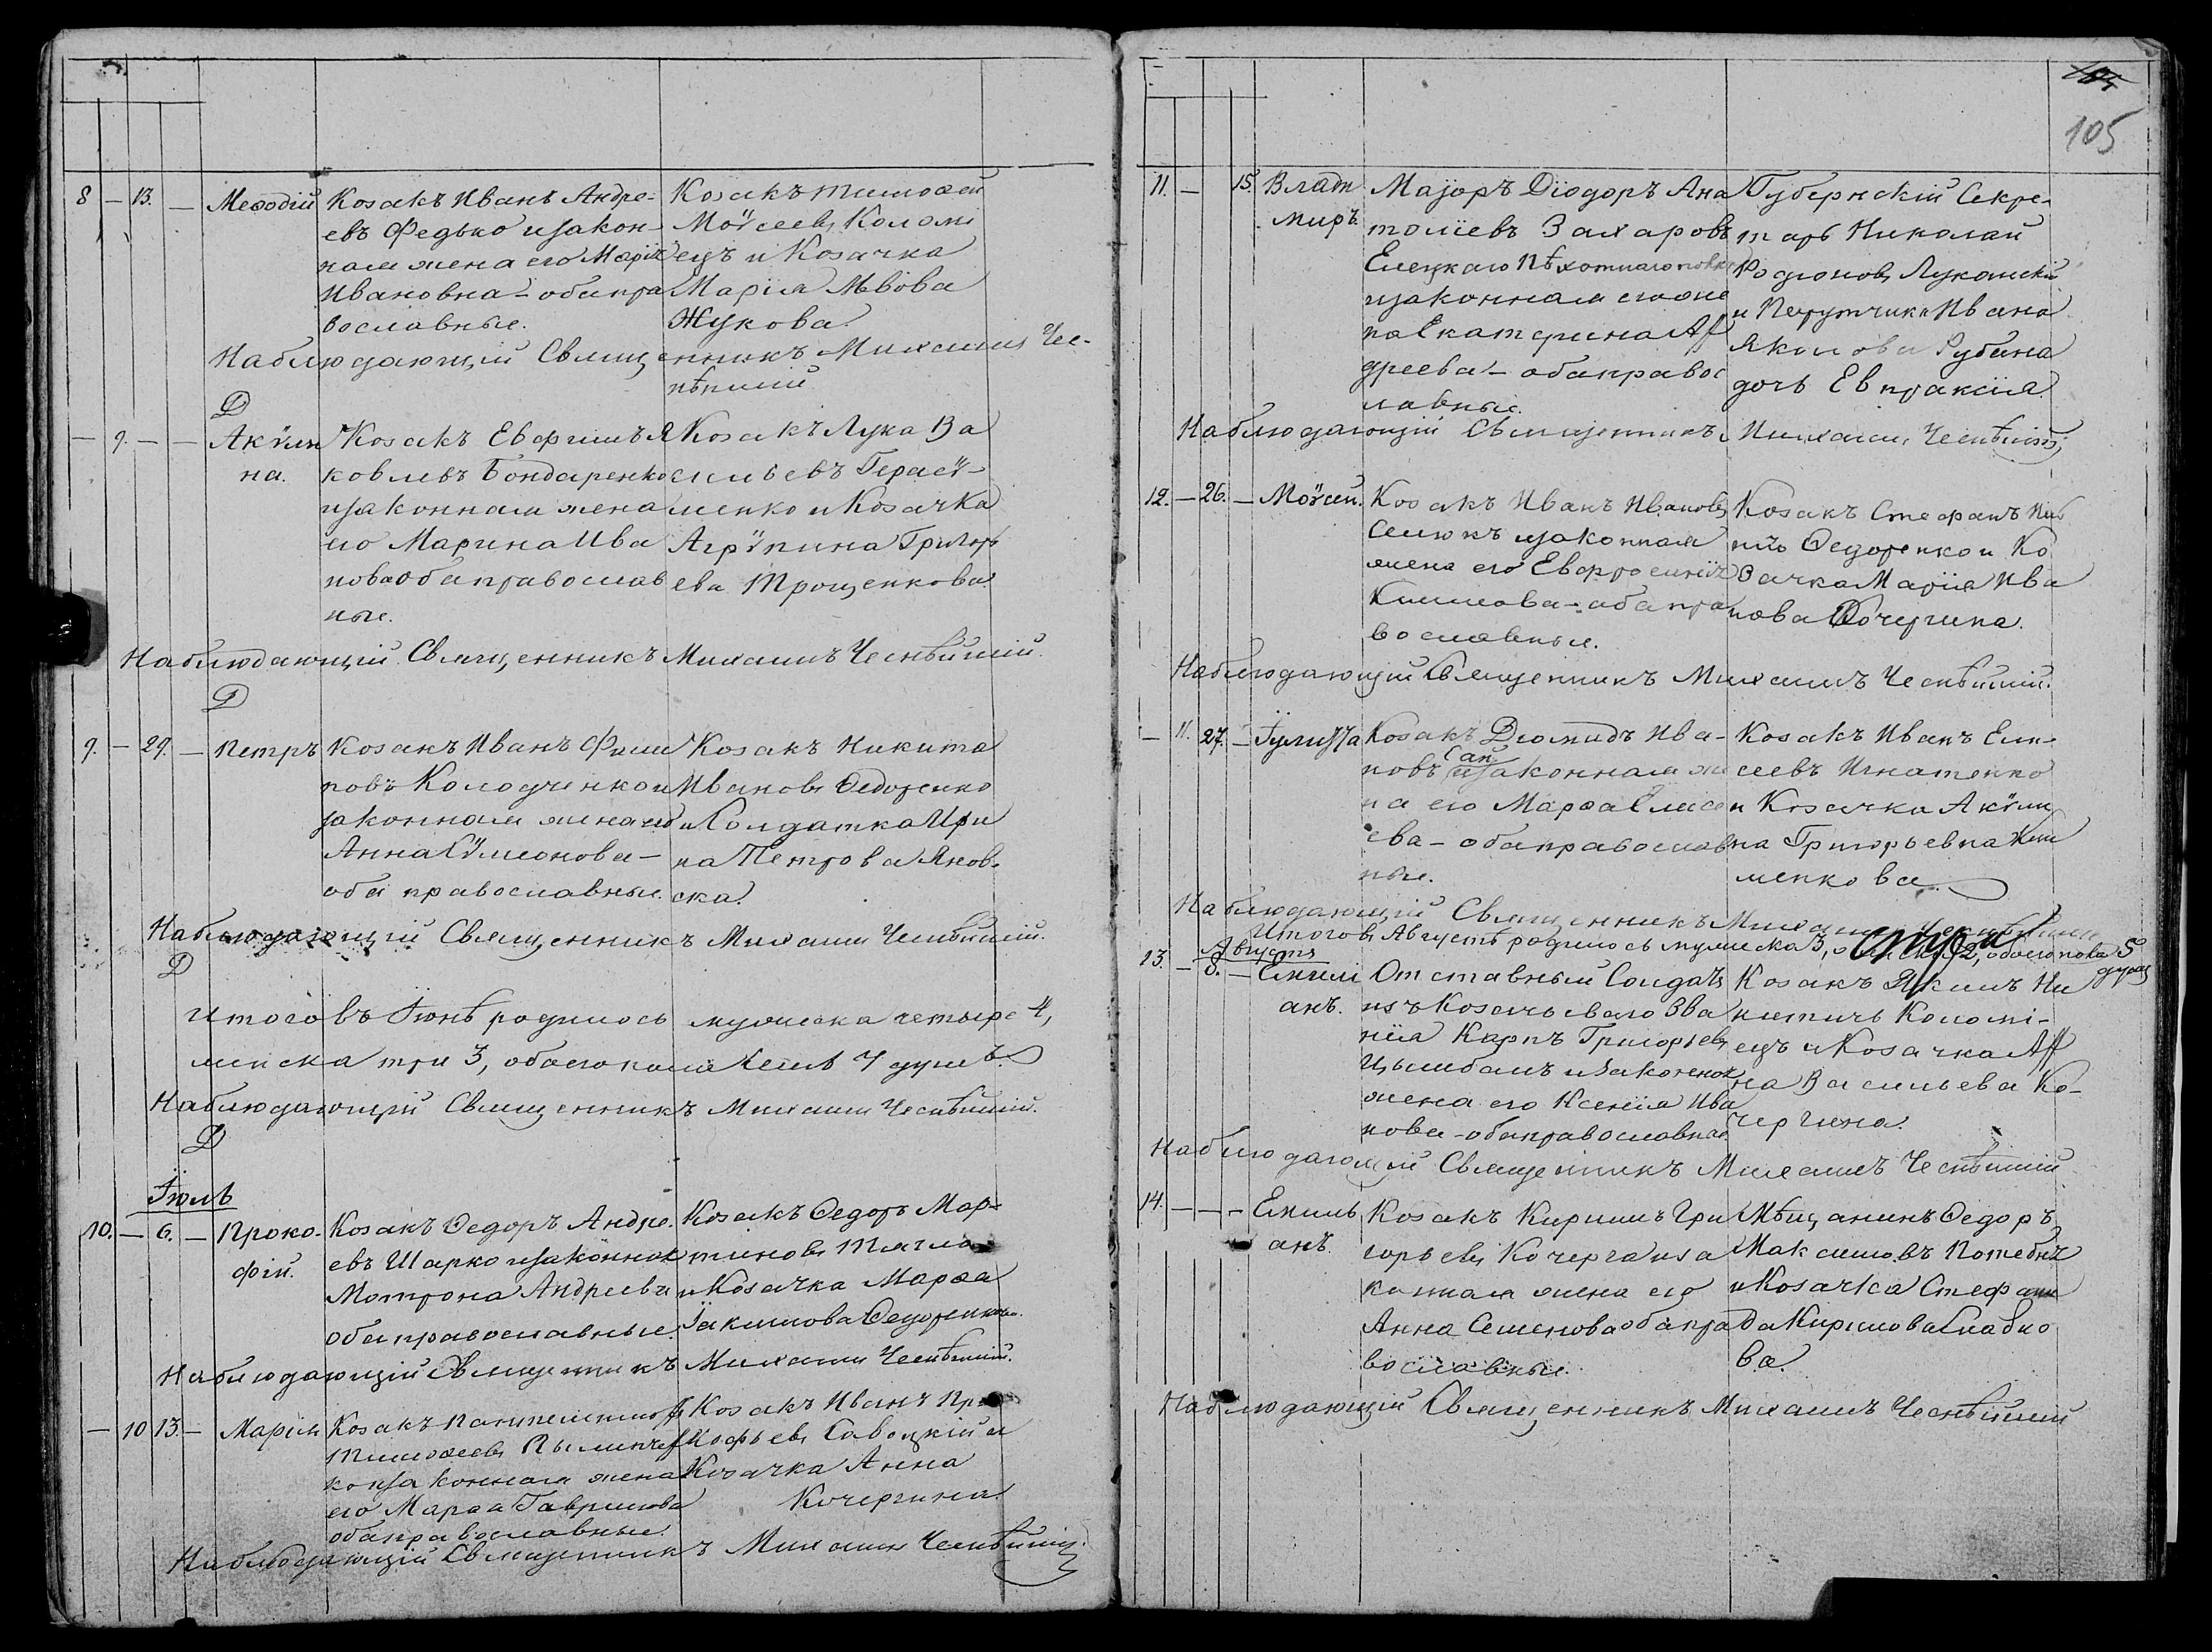 8 — 13. — Меѳодій
Козакъ Иванъ Андре-
евъ Федько и закон-
ная жена его Марія
Ивановна – оба пра
вославные.
Козакъ Тимоѳей
Моѵсеевъ Коломі
ецъ и Козачка
Марія Львова
Жукова.
Наблюдающій Священникъ Михаилъ Чес-
нѣйшій
— 9. — — Акѵли
на.
Козакъ Евфимъ Я
ковлевъ Бондаренко
и законная жена
его Марина Ива
нова оба православ
ные.
Козакъ Лука Ва
сильевъ Герасѵ-
менко и Козачка
Агрѵпина Григорь
ева Трощенкова.
Наблюдающій Священникъ Михаилъ Чеснѣйшій.
9. — 29. — Петръ
Козакъ Иванъ Фили
повъ Колодченко и
законная жена его
Анна Сѵмеонова –
оба православные.
Козакъ Никита
Ивановъ Ѳедоренко
и Солдатка Ири
на Петрова Янов-
ска.
Наблюдающій Священникъ Михаилъ Чеснѣйшій.
Итого въ Іюнѣ родилось мужеска четыре 4,
женска три 3, обоего пола семь 7 душъ.
Наблюдающій Священникъ Михаилъ Чеснѣйшій.
Іюль
10. — 6. — Проко-
фій.
Козакъ Ѳедоръ Андре-
евъ Шарко и законная
Мотрона Андреева
оба православные.
Козакъ Ѳедоръ Мар-
тиновъ Тягло
и Козачка Марѳа
Іакимова Ѳедоренкова.
Наблюдающій Священникъ Михаилъ Чеснѣйшій.
— 10 13. — Марія
Козакъ Пантелимо
Тимоѳеевъ
ко и законная жена
его Марѳа Гаврилова
оба православные.
Козакъ Иванъ Про
кофьевъ Савоцкій и
Козачка Анна
Кочергина.
Наблюдающій Священникъ Михаилъ Чеснѣйшій.
105
11. — 15. Влади
миръ
Маіоръ Діодоръ Ана
толіевъ Захаровъ
Елецкаго Пѣхотнаго полка
и законная его же
на Екатерина Ан
дреева – оба правос
лавные.
Губернскій Секре-
тарь Николай
Родіоновъ Луконскій
и Порутчика Ивана
Якимова Рубана
дочь Евпраксія.
Наблюдающій Священникъ Михаилъ Чеснѣйшій
12. — 26. — Моѵсей.
Козакъ Иванъ Ивановъ
Семюкъ и законная
жена его Евфросинія
Климова – оба пра
вославные.
Козакъ Стефанъ
Ѳедоренко и Ко
зачка Марія Ива
нова Кочергина.
Наблюдающій Священникъ Михаилъ Чеснѣйшій.
— 11. 27. — Іулитта
Козакъ Діомидъ Ива-
новъ Сак и законная же
на его Марѳа Елисе
ева – оба православ
ные.
Козакъ Иванъ Ели-
сеевъ Игнатенко
и Козачка Акѵли
на Григорьевна Кли
менкова.
Наблюдающій Священникъ Михаилъ Чеснѣйшій
Итого въ Августѣ родилось мужеска 3, 2, обоего пола 5
душъ
Августъ
13. — 8. — Емили
анъ.
Отставный Солдатъ
изъ Козачьяго Зва
нія Карпъ Григорьевъ
Цымбалъ и законная
жена его Ксенія Ива
нова – оба православные
Козакъ Якимъ Ни
китичъ Коломі-
ецъ и Козачка Ан
на Васильева Ко-
чергина.
Наблюдающій Священникъ Михаилъ Чеснѣйшій
14. — — — Емили
анъ.
Козакъ Кирилъ Гри
горьевъ Кочерга и за
конная жена его
Анна Семенова оба пра
вославные.
Мѣщанинъ Ѳедоръ
Максимовъ Потебнъ
и Козачка Стефани
да Кирилова Слабко
ва.
Наблюдающій Священникъ Михаилъ Чеснѣйшій